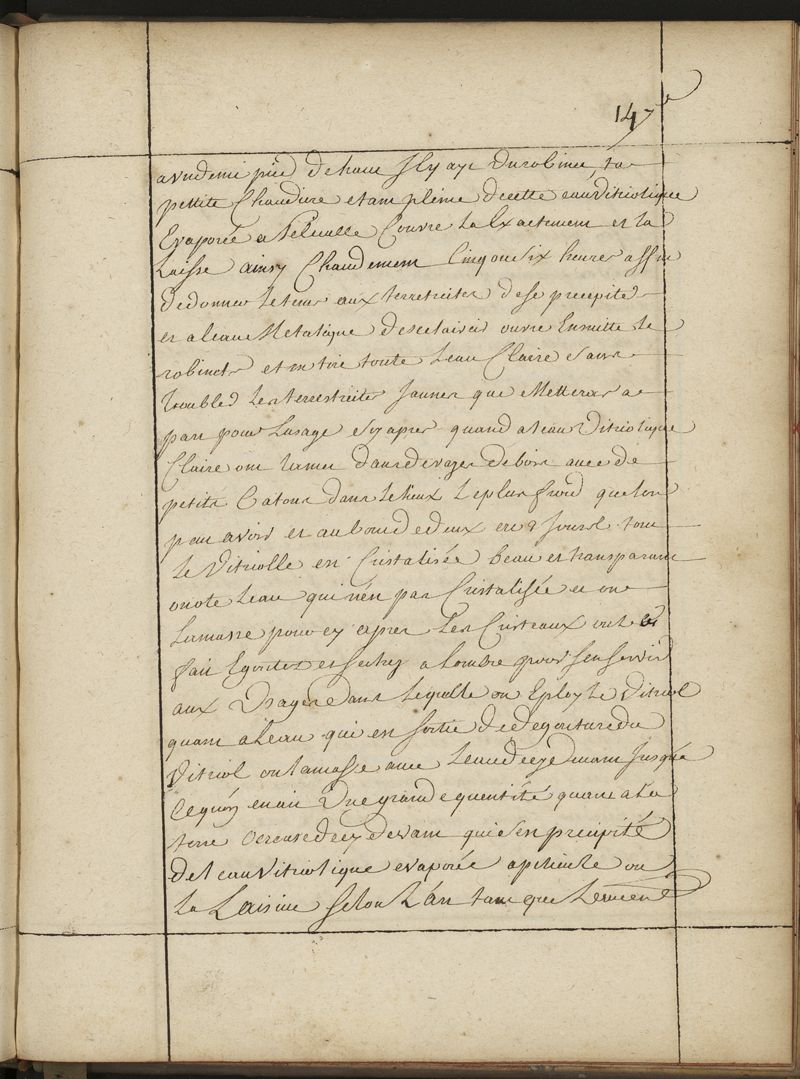 147
a un demi pied de haut Il y aye un robinet ta
petitte Chaudiere etant pleine de cette eau Vitriolique
Evaporée a Peliculle Couvre la Exactement et la
Laisse ainsy Chaudement Cinq ou Six heures affin
de donner le tems aux terrestreitez de se precipiter
et a leau Metalique desclaircir ouvre Ensuitte le
robinet et en tire toute leau Claire sans
troubler les terrestreites Jaunes que Metteras a
part pour Lusage Cy apres quand a leau Vitriolique
Claire on la met dans des vazes de bois avec de
petits Batons dans le lieux le plus froid que lon
peut avoir et au bout de deux ou 3 Jours tout
le Vitriolle est Cristalisée beau et transparant
on ote leau qui nést pas Cristalisée et on
Lamasse pour cy apres Les Cristeaux ont les
fait Egoutez et secher a lombre pour sen servir
aux Usages dans lequelle on Eploy le Vitriol
quant a leau qui est sortie de degouture du
Vitriol on lamasse avec leau de cy devant Jusqua
Cequón en ait Une grande quentité quant a la
terre ocreuse de cy devant qui sest precipité
de leau Vitriolique evaporée a pelicule on
La Laisive selon Lárt tant que